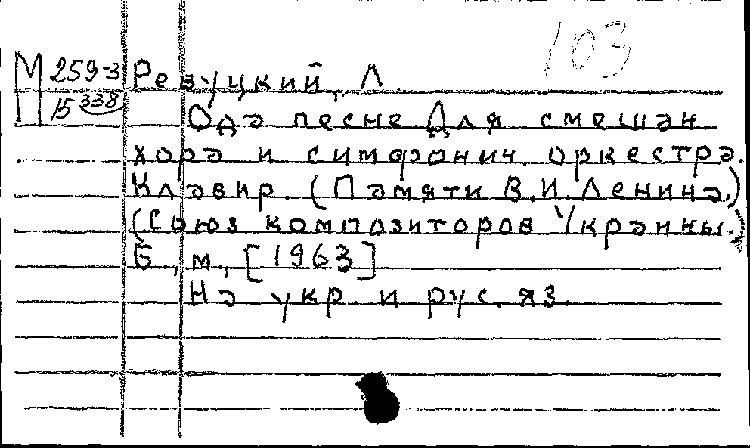 103
М 259-3 Ревуцкий, Л.
15 338 Ода песне Для смешан
хора и симфонич. оркестра.
Клавир. (Памяти В.И. Ленина.)
(Союз композиторов Украины.)
Б. м., [1963]
На укр и рус. яз.